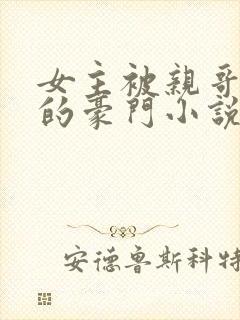 女主被親哥
的豪門小說
安德魯斯科特